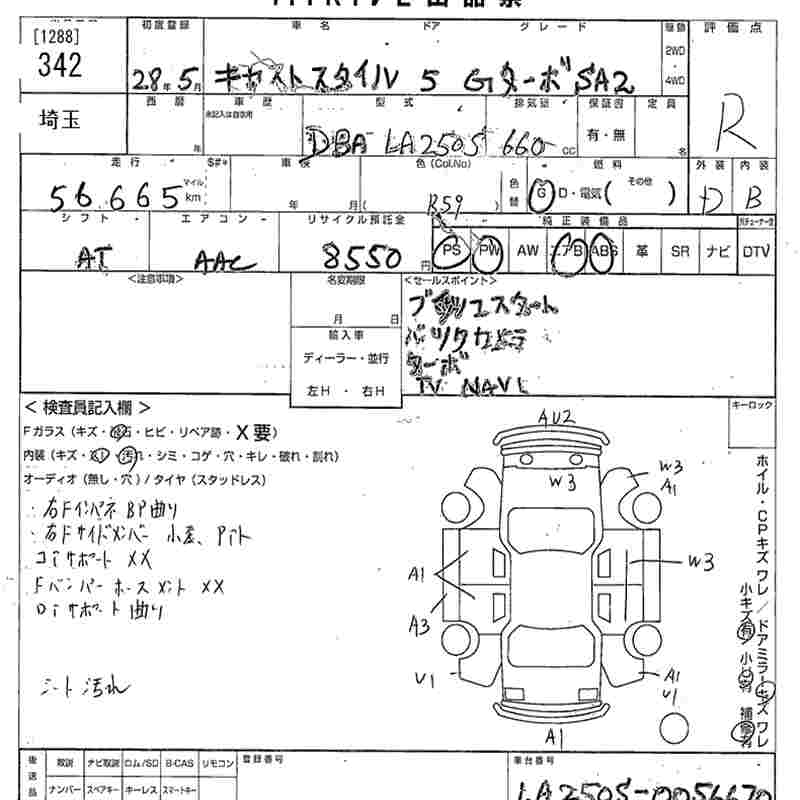 [1288]
342
埼玉
初度登録 車名 ドア グレード 駆動 評価点
28年5月 キャストスタイル 5 GターボSA2 2WD・4WD R
西暦 車歴 型式 排気量 保証書 定員
年 未記入は自家用 DBA LA250S 660cc 有・無 名
走行 $#* 車検 色(Col.No) 色替 燃料 外装 内装
56,665 マイル km 年 月 ( R59 ) G D・電気( その他 ) D B
シフト エアコン リサイクル預託金 純正装備品
AT AAC 8550円 PS PW AW エアB ABS 革 SR ナビ DTV
<注意事項> 名変期限 <セールスポイント>
月 日
輸入車
ディーラー・並行
左H ・ 右H
プッシュスタート
バックカメラ
ターボ
TV NAVI
<検査員記入欄> キーロック
Fガラス(キズ・飛石・ヒビ・リペア跡・X要)
内装(キズ・スリ・汚れ・シミ・コゲ・穴・キレ・破れ・割れ)
オーディオ(無し・穴)/タイヤ(スタッドレス)
・右Fインパネ BP曲り
・右Fサイドメンバー 小差、Pハト
コアサポート XX
Fバンパーホースメント XX
ロアサポート 曲り
シート汚れ
AU2
W3
W3
A1
A1
W3
A3
U1
A1
U1
A1
ホイル・CPキズワレ/ドアミラーキズワレ
小キズ有 小凹有 補修有
後送品 取説 ナビ取説 ロム/SD B-CAS リモコン 登録番号 車台番号
ナンバー スペアキー キーレス スマートキー LA250S-0056670